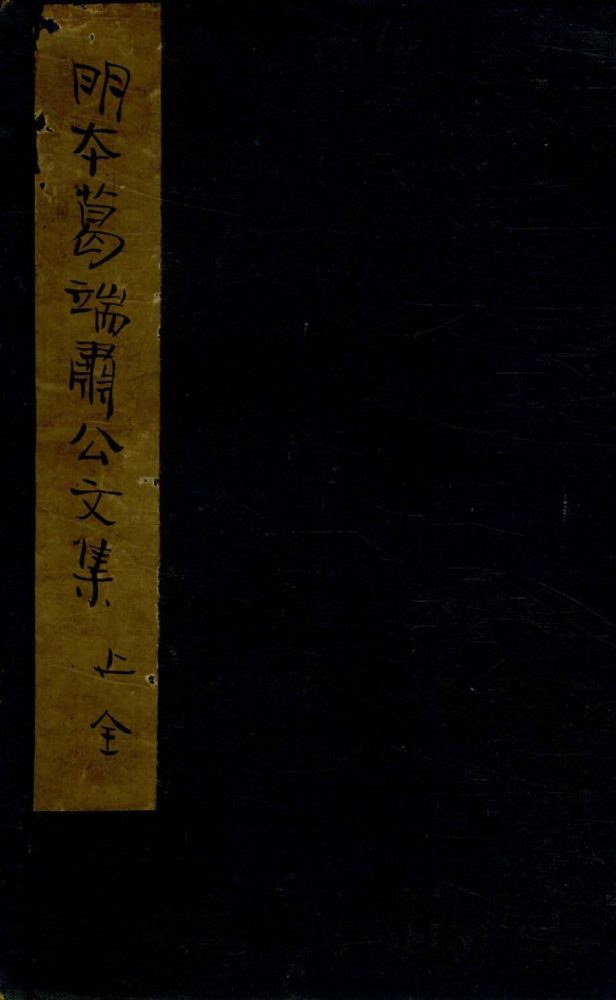 明本葛端肅公文集
上全